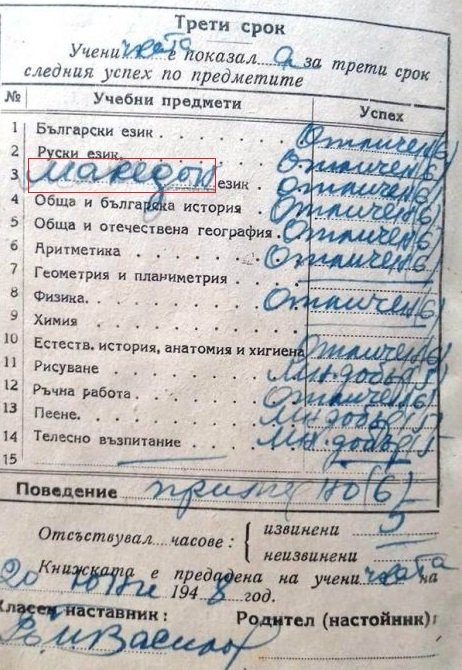 Трети срок
Ученичката е показал а за трети срок
следния успех по предметите
№ Учебни предмети Успех
1 Български език . . . . . . . Отличен (6)
2 Руски език. . . . . . . . . Отличен (6)
3 Македон език . . . Отличен (6)
4 Обща и българска история . . . Отличен (6)
5 Обща и отечествена география . Отличен (6)
6 Аритметика . . . . . . . . Отличен (6)
7 Геометрия и планиметрия . . . .
8 Физика. . . . . . . . . . Отличен (6)
9 Химия . . . . . . . . . .
10 Естеств. история, анатомия и хигиена Отличен (6)
11 Рисуване . . . . . . . . Мн. добър (5)
12 Ръчна работа . . . . . . . Отличен (6)
13 Пеене. . . . . . . . . . Мн. добър (5)
14 Телесно възпитание . . . . . Мн. добър (5
15
Поведение примерно (6)
Отсъствувал часове: { извинени 5
неизвинени
Книжката е предадена на ученичката на
20 юни 1948 год.
Класен наставник: Родител (настойник):